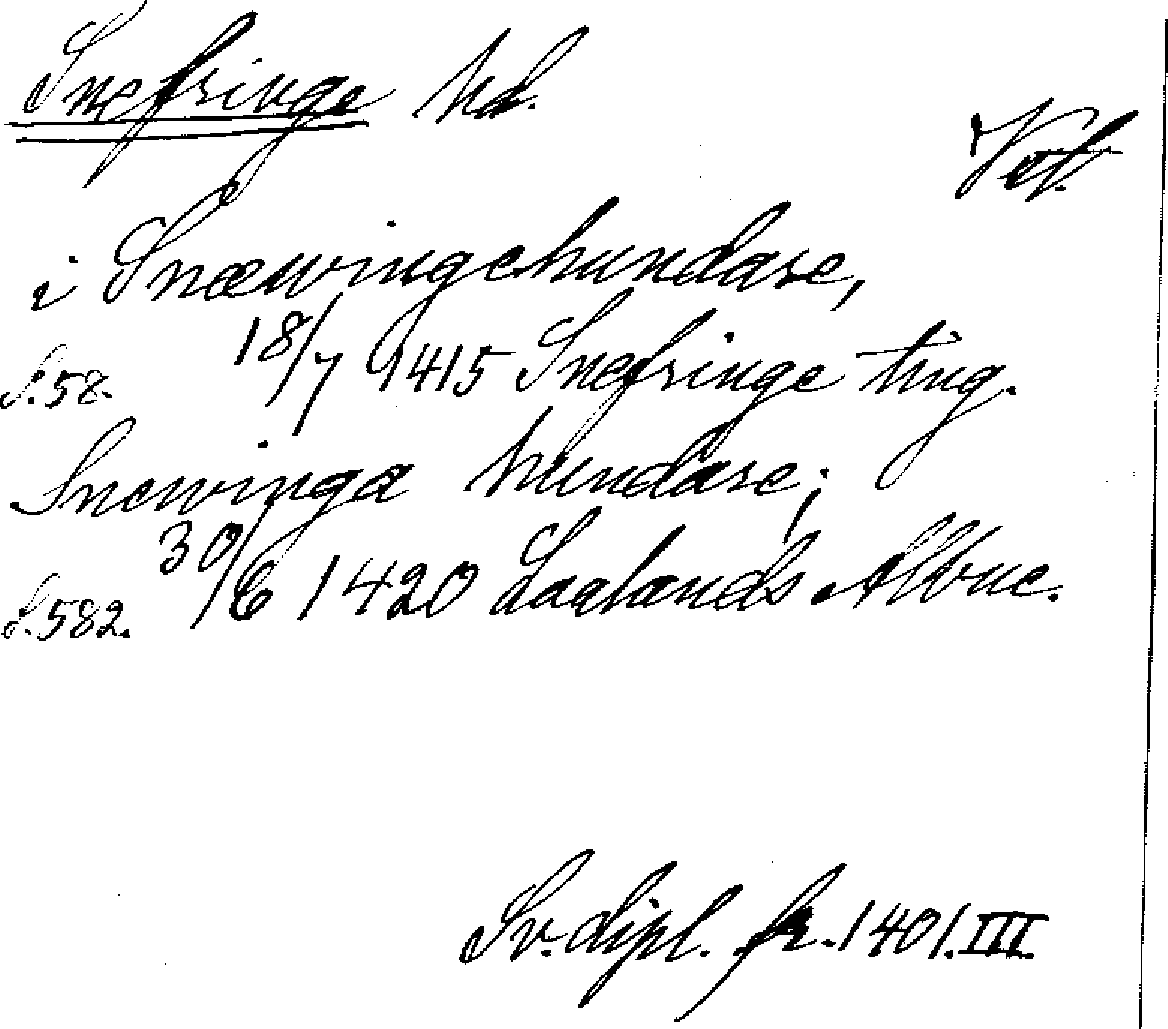 Snefringe hd.
Vst.
i Snæwringehundare,
S.58. 18/7 1415 Snefringe ting.
Snewringa hundare;
S.582. 30/6 1420 Laglands Albue.
Sv. dipl. fr. 1401. III.